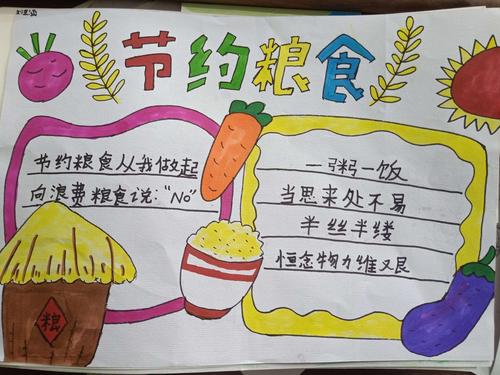 节约粮食
节约粮食从我做起
向浪费粮食说:“No”
一粥一饭
当思来处不易
半丝半缕
恒念物力维艰
粮